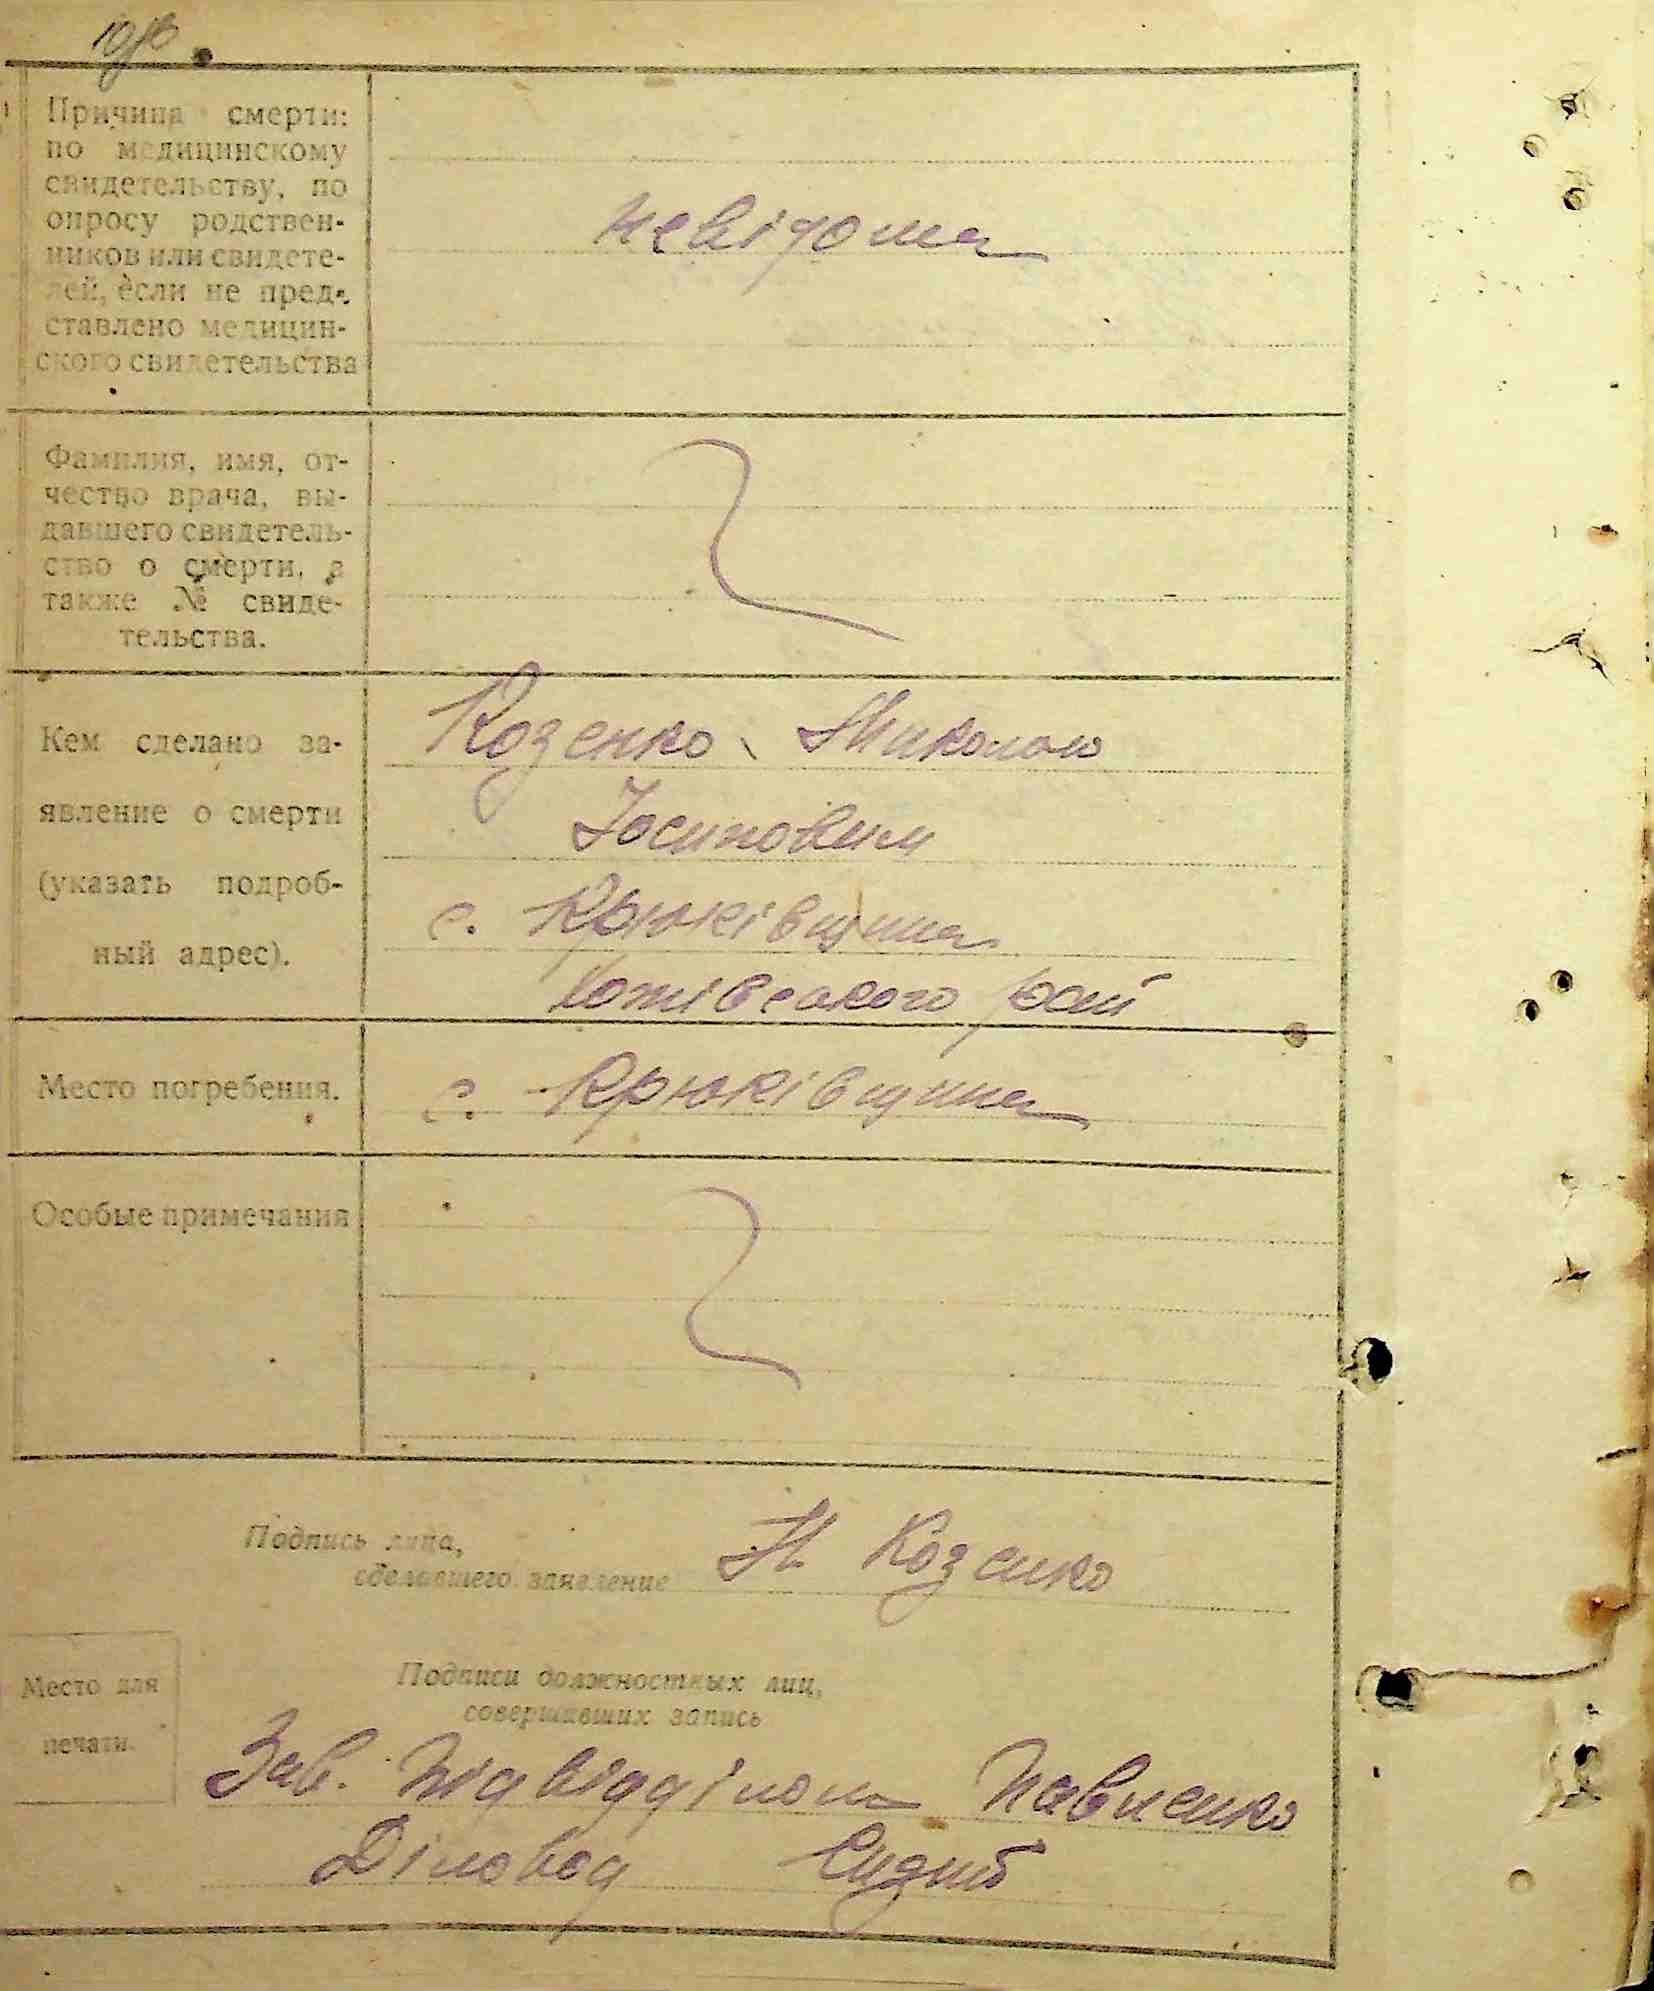 Причина смерти:
по медицинскому
свидетельству, по
опросу родствен-
ников или свидете-
лей, если не пред-
ставлено медицин-
ского свидетельства
невідома
Фамилия, имя, от-
чество врача, вы-
давшего свидетель-
ство о смерти, а
также № свиде-
тельства.
Кем сделано за-
явление о смерти
(указать подроб-
ный адрес).
Козенко Миколою
Йосиповим
с. Крюківщина
рай
Место погребения.
с. Крюківщина
Особые примечания
Подпись лица,
сделавшего заявление
М. Козенко
Место для
печати.
Подписи должностных лиц,
совершивших запись
Зав. підвідділом Павленко
Діловод